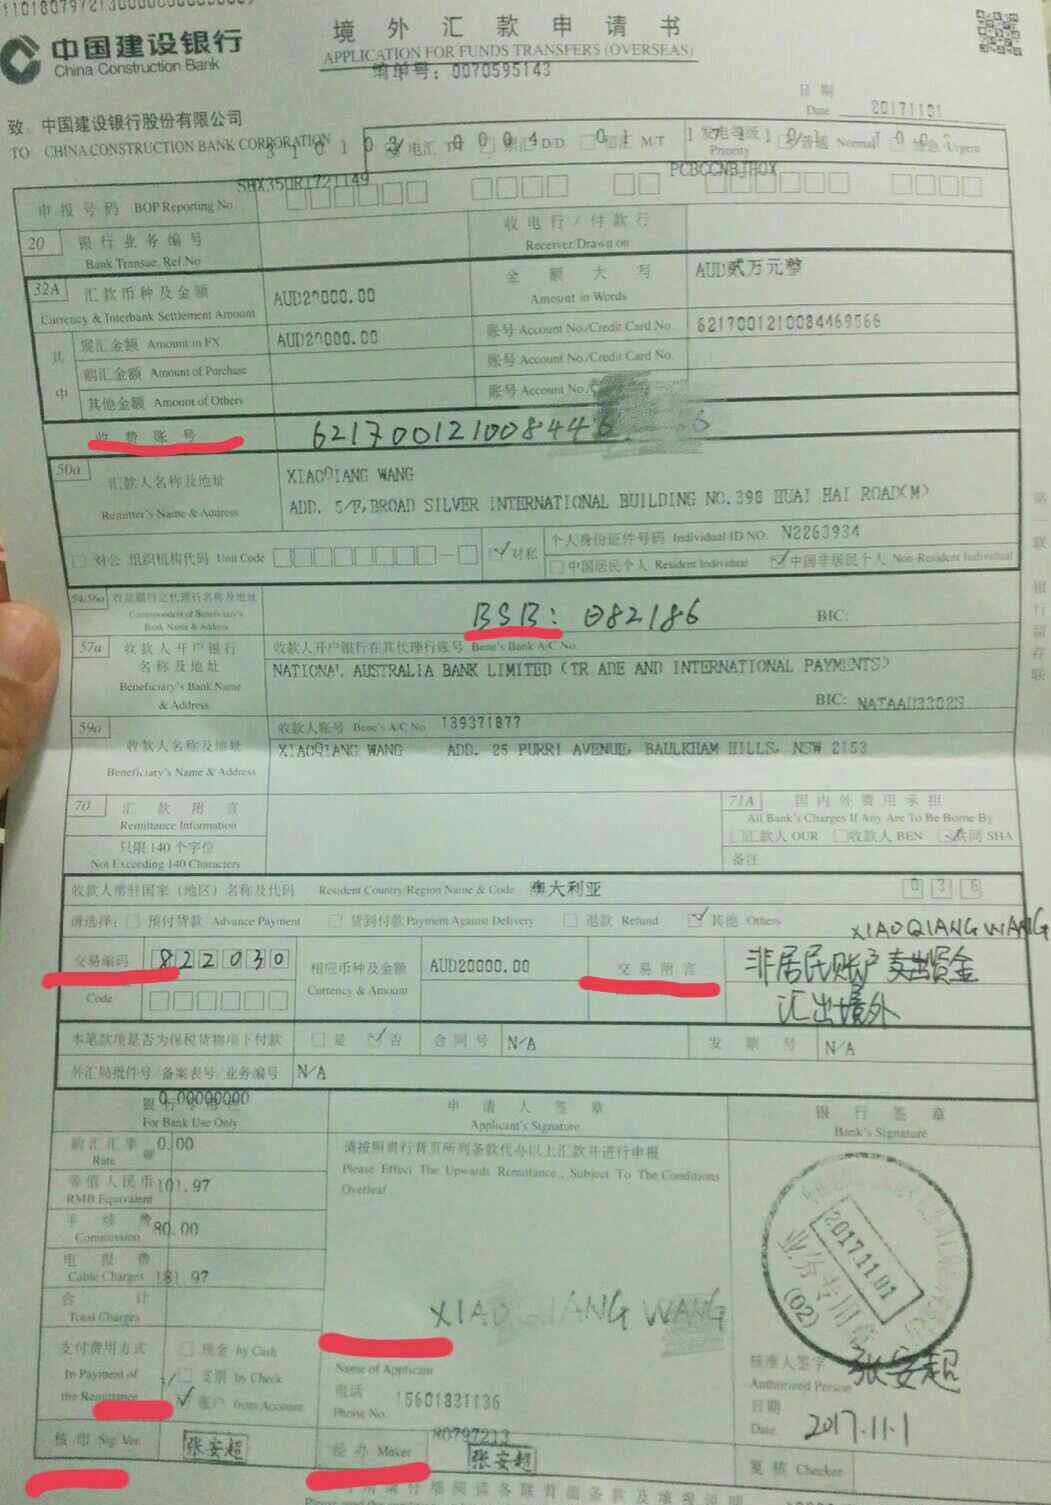 境外汇款申请书
中国建设银行
China Construction Bank
APPLICATION FOR FUNDS TRANSFERS (OVERSEAS)
编单号: 0070595143
日期
Date 20171101
致: 中国建设银行股份有限公司
TO CHINA CONSTRUCTION BANK CORPORATION
电汇 T/T D/D 信汇 M/T 发电等级 Priority 普通 Normal Urgent
PCBCCNBJHQX
申报号码 BOP Reporting No.
20 银行业务编号 收电行/付款行
Bank Transac. Ref No Receiver/Drawn on
32A 汇款币种及金额 AUD20000.00 金额大写 AUD贰万元整
Currency & Interbank Settlement Amount Amount in Words
其中 现汇金额 Amount in FX AUD20000.00 账号 Account No./Credit Card No. 6217001210084469566
购汇金额 Amount of Purchase 账号 Account No./Credit Card No.
其他金额 Amount of Others 账号 Account No.
收费账号 621700121008446 6
50a 汇款人名称及地址 XIAOQIANG WANG
Remitter's Name & Address ADD. 5/F,BROAD SILVER INTERNATIONAL BUILDING NO.398 HUAI HAI ROAD(M)
对公 组织机构代码 Unit Code 对私 个人身份证件号码 Individual ID NO. N2263934
中国居民个人 Resident Individual 中国非居民个人 Non-Resident Individual
54/56a 收款银行之代理行名称及地址
Correspondent of Beneficiary's Bank Name & Address BSB: 082186 BIC:
57a 收款人开户银行名称及地址 收款人开户银行在其代理行账号 Bene's Bank A/C No.
Beneficiary's Bank Name & Address NATIONAL AUSTRALIA BANK LIMITED (TRADE AND INTERNATIONAL PAYMENTS)
BIC: NATAAU3302S
59a 收款人账号 Bene's A/C No 139371877
收款人名称及地址 XIAOQIANG WANG ADD. 25 PURRI AVENUE, BAULKHAM HILLS, NSW 2153
Beneficiary's Name & Address
70 汇款附言 71A 国内外费用承担
Remittance Information All Bank's Charges If Any Are To Be Borne By
只限140个字位 汇款人 OUR 收款人 BEN 共同 SHA
Not Exceeding 140 Characters 备注
收款人常驻国家(地区)名称及代码 Resident Country/Region Name & Code 澳大利亚 036
请选择: 预付货款 Advance Payment 货到付款 Payment Against Delivery 退款 Refund 其他 Others
XIAOQIANG WANG
交易编码 822030 相应币种及金额 AUD20000.00 交易附言 非居民账户支出资金
Code Currency & Amount 汇出境外
本笔款项是否为保税货物项下付款 是 否 合同号 N/A 发票号 N/A
外汇局批件号/备案表号/业务编号 N/A
0.00000000
For Bank Use Only 申请人签章 Applicant's Signature 银行签章 Bank's Signature
购汇汇率 Rate @ 0.00 请按照贵行背页所列条款代办以上汇款并进行申报
等值人民币 RMB Equivalent 101.97 Please Effect The Upwards Remittance, Subject To The Conditions Overleaf
手续费 Commission 80.00
电报费 Cable Charges 181.97
合计 Total Charges
2017.11.01
业务专用章
(02)
XIAOQIANG WANG
支付费用方式 现金 by Cash
In Payment of the Remittance 支票 by Check
账户 from Account
Name of Applicant
电话 Phone No. 15601831136
核准人签字 Authorized Person 张安超
日期 Date 2017.11.1
核印 Sig. Ver. 张安超 经办 Maker 张安超 复核 Checker